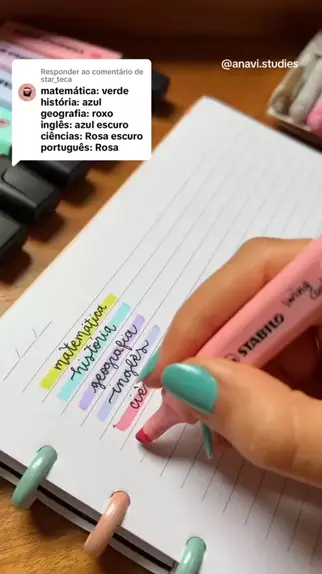 @anavi.studies
Responder ao comentário de
star_teca
matemática: verde
história: azul
geografia: roxo
inglês: azul escuro
ciências: Rosa escuro
português: Rosa
matemática
história
geografia
inglês
ciê
STABILO
swing